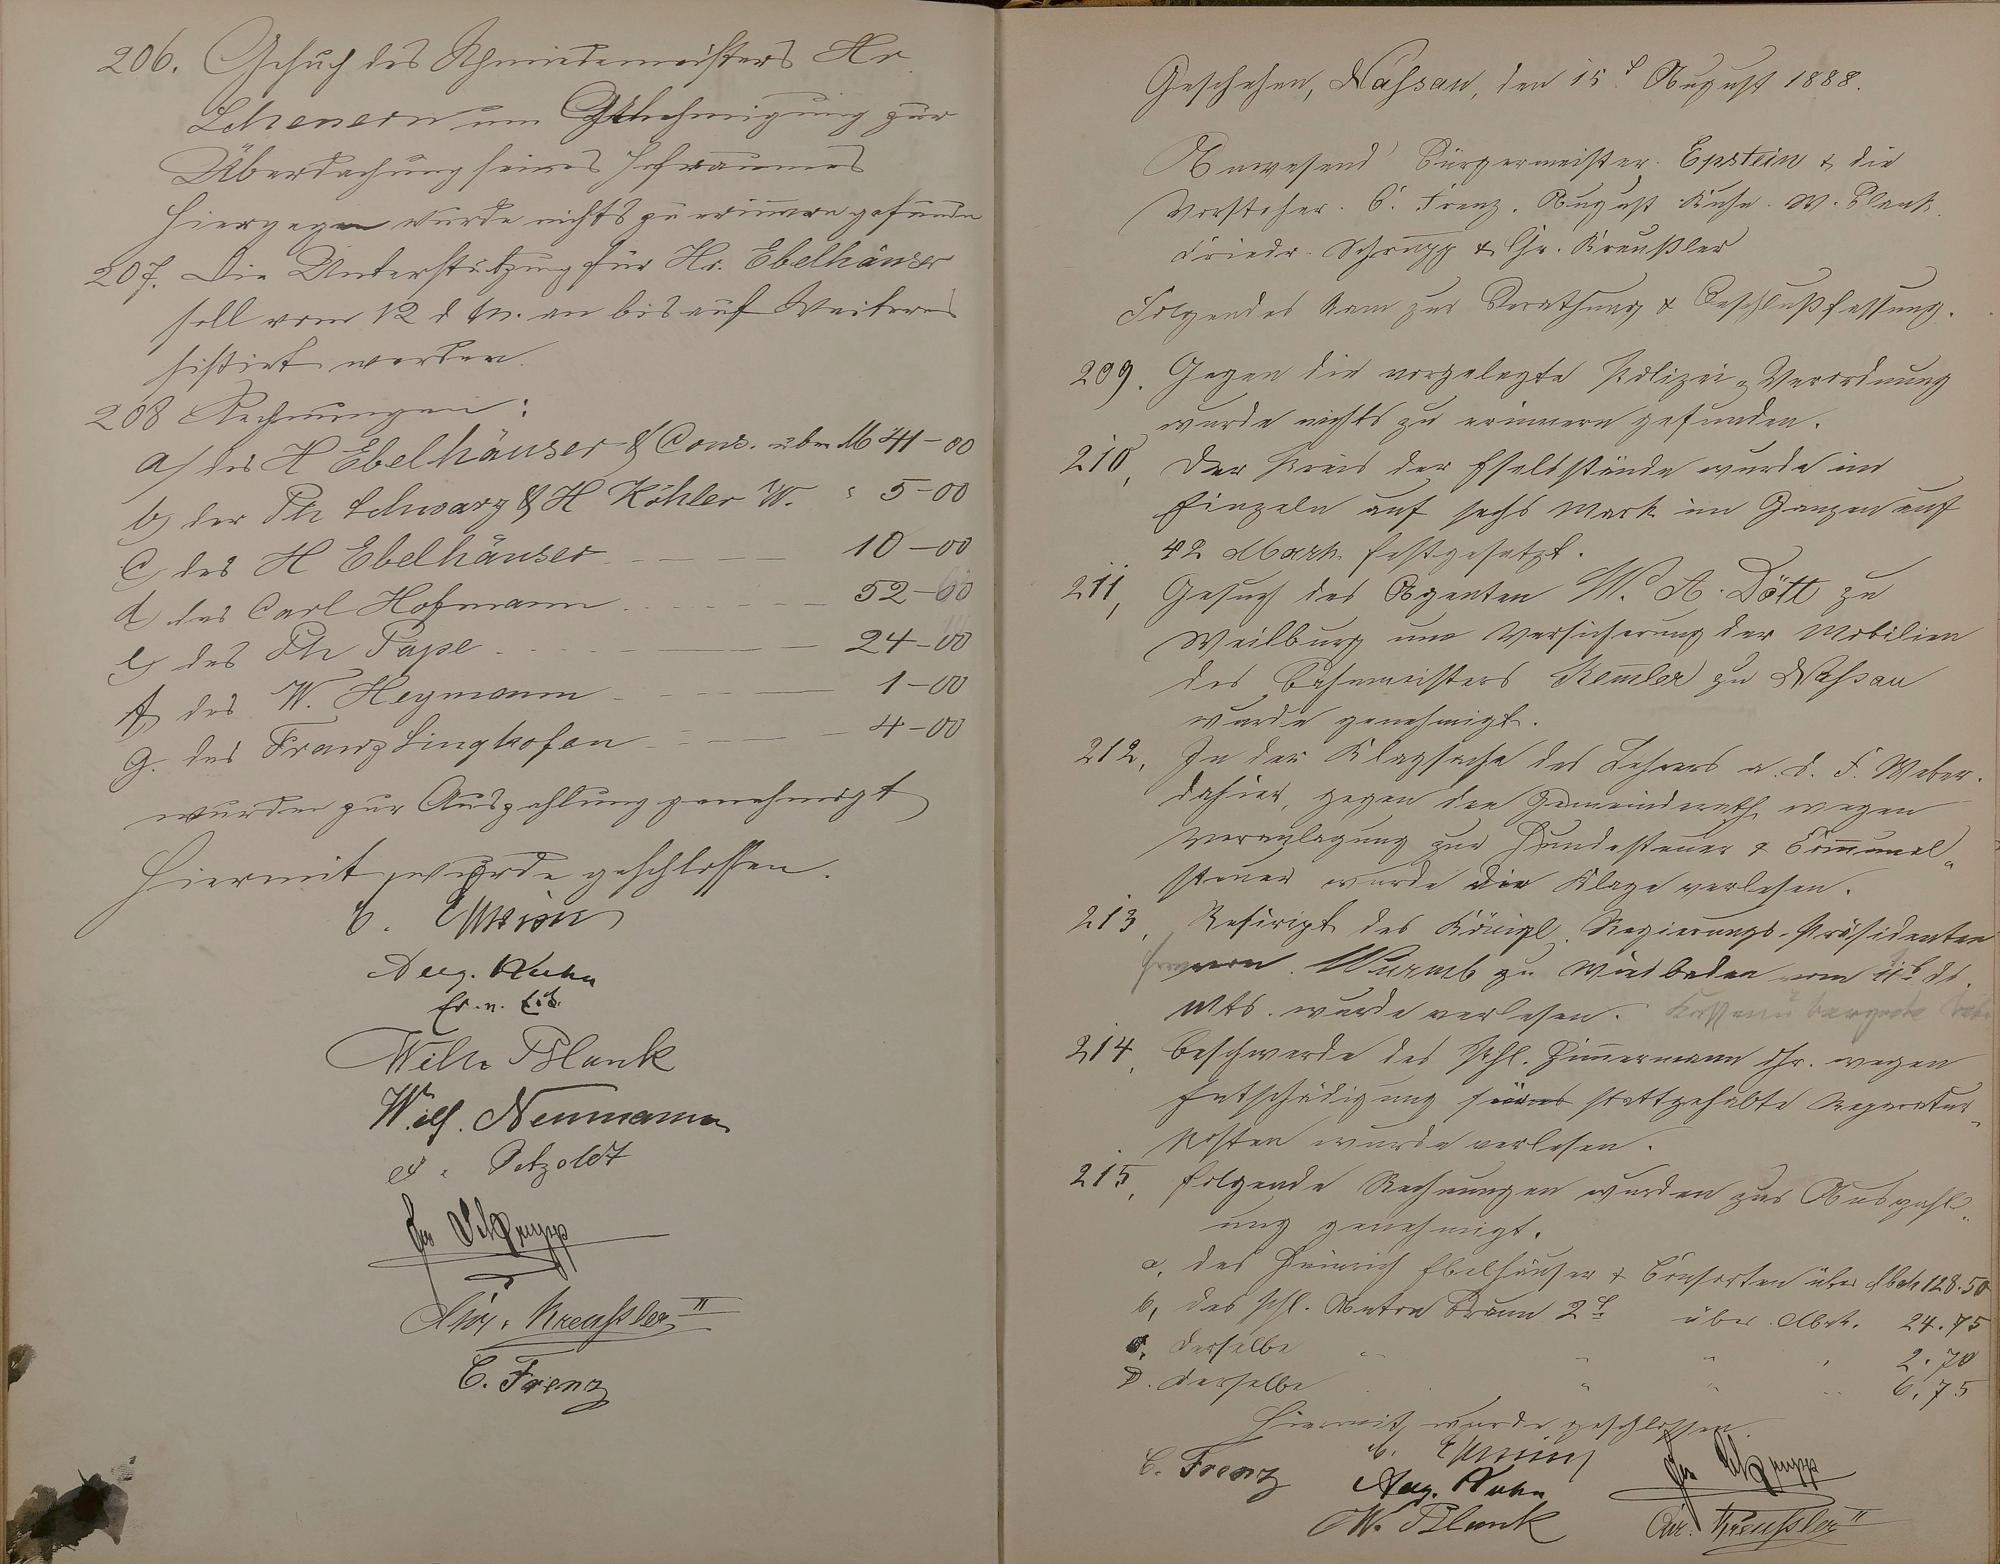 206. Gesuch des Schmiedemeisters Hr.
Schenern um Genehmigung zur
Überdachung seines Hofraumes
Hiergegen wurde nichts zu erinnern gefunden
207. Die Unterstützung für Hr. Ebelhäuser
soll vom 12 d. M. an bis auf Weiteres
sistirt werden.
208 Rechnungen:
a) des H Ebelhäuser & Cons. über M 41-00
b) der Ph Schwarz & H Köhler W. " 5-00
c) des H Ebelhäuser 10-00
d) des Carl Hofmann 52-60
e) des Ph Pape 24-00
f) des W. Heymann 1-00
g. des Franz Linghofen 4-00
wurden zur Auszahlung genehmigt
Hiermit wurde geschlossen.
Aug. Kuhn
Wilh Blank
Wilh. Neumann
Petzoldt
Schrupp
Chr. Kreußler II
C. Frenz
Geschehen, Nassau, den 15t August 1888.
Anwesend Bürgermeister Epstein & die
Vorsteher C. Frenz. August Kuhn. W. Blank.
Friedr. Schrupp & Chr. Kreußler
Folgendes kam zur Berathung & Beschlußfassung.
209. Gegen die vorgelegte Polizei-Verordnung
wurde nichts zu erinnern gefunden.
210, Der Preis der Eselsstände wurde im
Einzeln auf sechs Mark im Ganzen auf
42 Mark festgesetzt.
211, Gesuch des Agenten W. A. Dött zu
Weilburg um Versicherung der Mobilien
des Bahnmeisters Kemler zu Nassau
wurde genehmigt.
212, In der Klagsache des Lehrers a. D. F. Weber.
dahier, gegen den Gemeinderath wegen
Veranlagung zur Hundesteuer & Communal-
steuer wurde die Klage verlesen.
213, Rescript des Königl. Regierungs-Präsidenten
Herrn Wurmb zu Wiesbaden vom 11t ds.
Mts. wurde verlesen.
214, Beschwerde des Phl. Zimmermann Chr. wegen
Entschädigung seines stattgehabte Reparatur-
kosten wurde verlesen.
215, Folgende Rechnungen wurden zur Auszahl-
ung genehmigt.
a, des Heinrich Ebelhäuser & Consorten über Mark 128.50
b, des Phl. Anton Braun 2t über Mrk. 24.75
c, derselbe " " " 2.70
d. derselbe " " 6.75
Hiermit wurde geschlossen
C. Frenz
Aug. Kuhn
Schrupp
W. Blank
Chr. Kreußler II